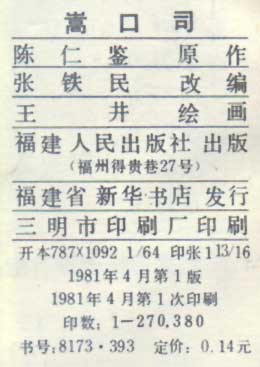 嵩口司
陈仁鉴 原作
张铁民 改编
王井 绘画
福建人民出版社 出版
(福州得贵巷27号)
福建省新华书店 发行
三明市印刷厂印刷
开本787×1092 1/64 印张1 13/16
1981年4月第1版
1981年4月第1次印刷
印数：1—270,380
书号：8173·393 定价：0.14元